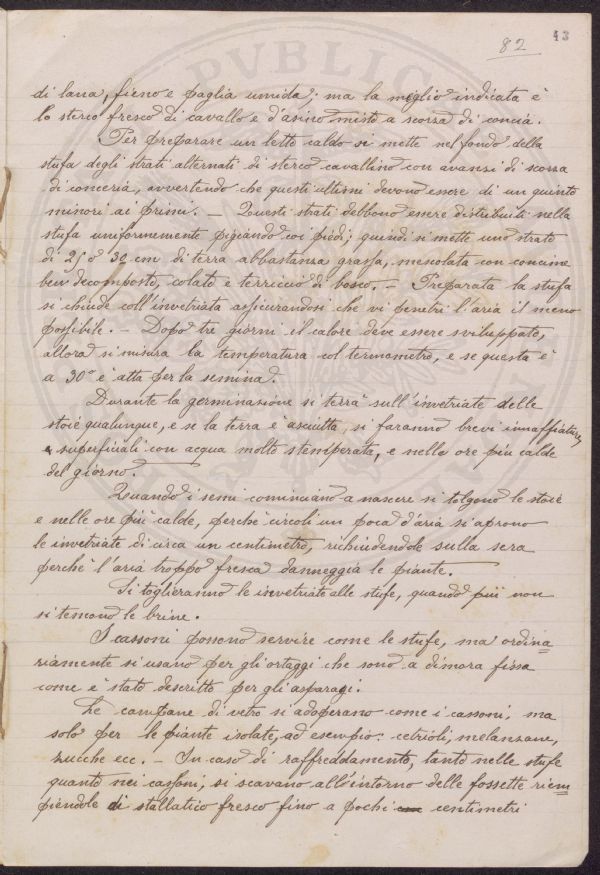 43
82
di lana, fieno e paglia umida; ma la meglio indicata è
lo sterco fresco di cavallo e d'asino misto a scorza di concia.
Per preparare un letto caldo si mette nel fondo della
stufa degli strati alternati di sterco cavallino con avanzi di scorza
di conceria, avvertendo che questi ultimi devono essere di un quinto
minori ai primi. — Questi strati debbono essere distribuiti nella
stufa uniformemente pigiando coi piedi; quindi si mette uno strato
di 25 o 30 cm di terra abbastanza grassa, mescolata con concime
ben decomposto, colato e terriccio di bosco. — Preparata la stufa
si chiude coll'invetriata assicurandosi che vi penetri l'aria il meno
possibile. — Dopo tre giorni il calore deve essere sviluppato,
allora si misura la temperatura col termometro, e se questa è
a 30° è atta per la semina.
Durante la germinazione si terrà sull'invetriate delle
stoie qualunque, e se la terra è asciutta, si faranno brevi innaffiature
superficiali con acqua molto stemperata, e nelle ore più calde
del giorno.
Quando i semi cominciano a nascere si tolgono le stoie
e nelle ore più calde, perchè circoli un poca d'aria si aprono
le invetriate di circa un centimetro, richiudendole sulla sera
perchè l'aria troppo fresca danneggia le piante.
Si toglieranno le invetriate alle stufe, quando più non
si temono le brine.
I cassoni possono servire come le stufe, ma ordina
riamente si usano per gli ortaggi che sono a dimora fissa
come è stato descritto per gli asparagi.
Le campane di vetro si adoperano come i cassoni, ma
solo per le piante isolate, ad esempio: cetrioli, melanzane,
zucche ecc. — In caso di raffreddamento, tanto nelle stufe
quanto nei cassoni, si scavano all'intorno delle fossette riem
piendole di stallatico fresco fino a pochi centimetri